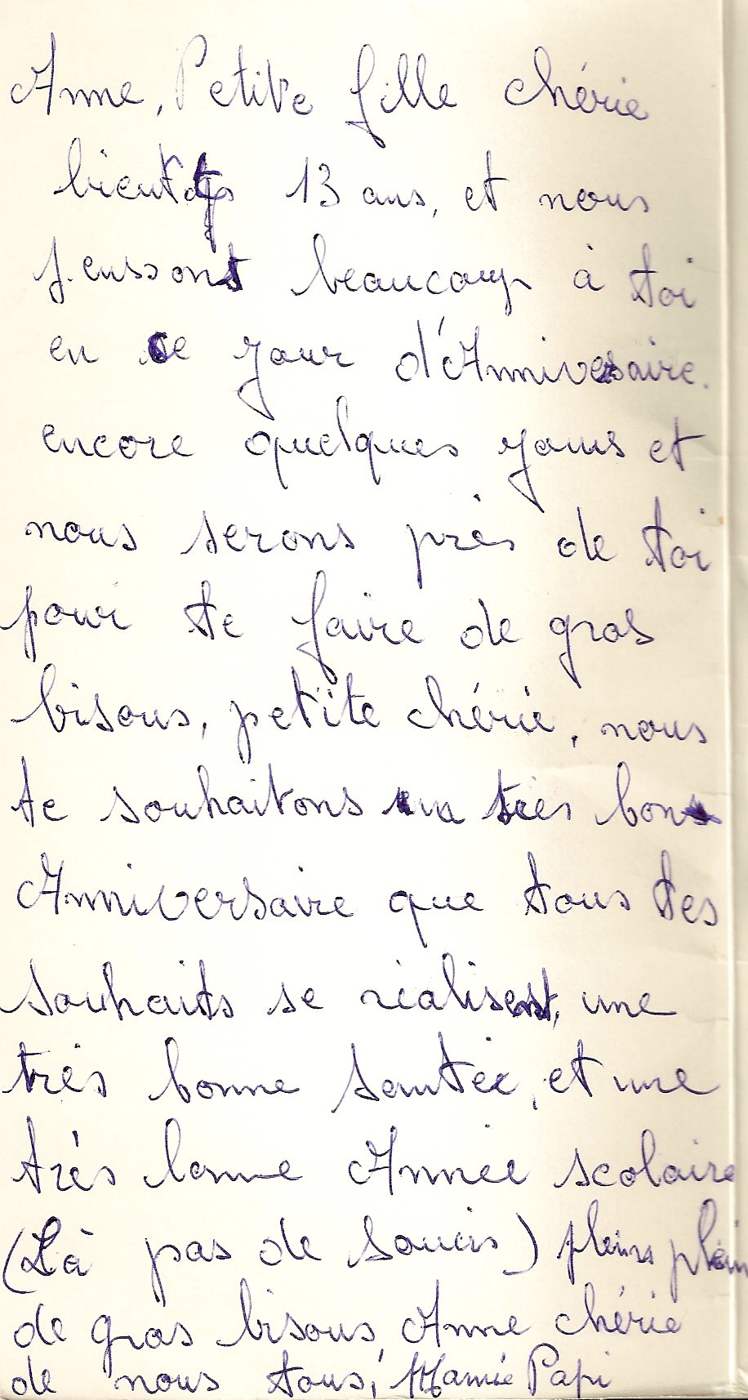 Anne, Petite fille chérie
bientôt 13 ans, et nous
penssons beaucoup à toi
en ce jour d'Anniversaire.
encore quelques jours et
nous serons près de toi
pour te faire de gros
bisous, petite chérie, nous
te souhaitons un très bon
Anniversaire que tous tes
souhaits se réalisent, une
très bonne santée, et une
très bonne Année scolaire
(Là pas de soucis) pleins plein
de gros bisous, Anne chérie
de nous tous, Mamie Papi